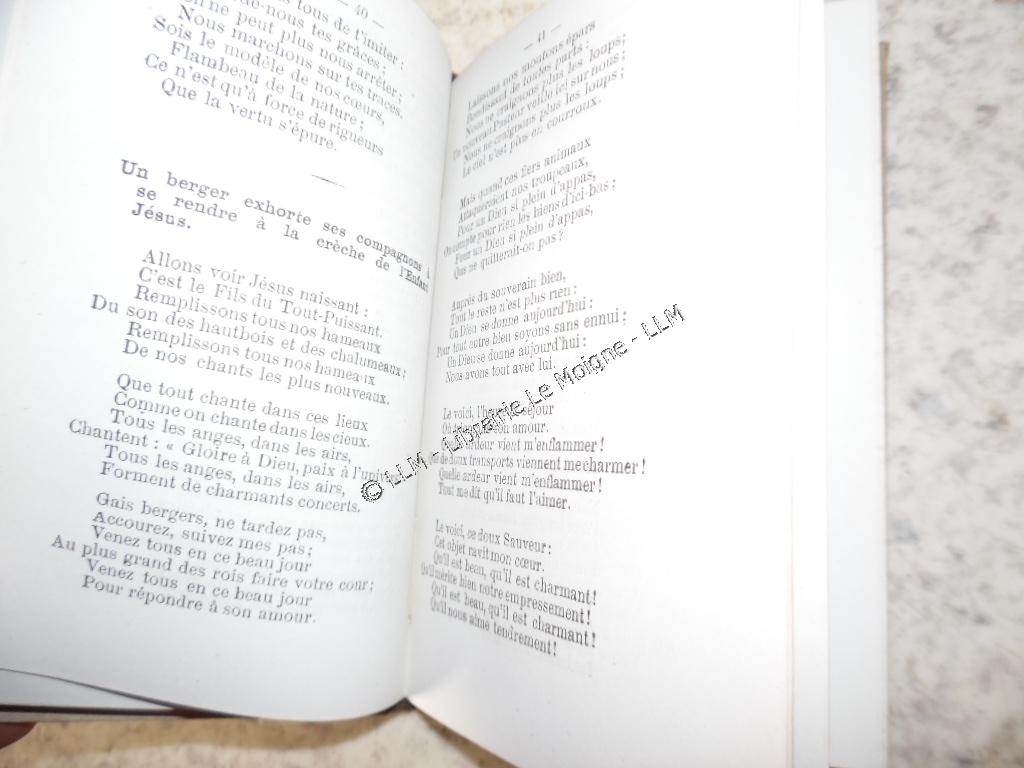 — 40 —
tous de t'imiter:
-nous tes grâces;
ne peut plus nous arrêter;
Nous marchons sur tes traces.
Sois le modèle de nos cœurs,
Flambeau de la nature;
Ce n'est qu'à force de rigueurs
Que la vertu s'épure.
Un berger exhorte ses compagnons à
se rendre à la crèche de l'Enfant
Jésus.
Allons voir Jésus naissant :
C'est le Fils du Tout-Puissant.
Remplissons tous nos hameaux
Du son des hautbois et des chalumeaux;
Remplissons tous nos hameaux
De nos chants les plus nouveaux.
Que tout chante dans ces lieux
Comme on chante dans les cieux.
Tous les anges, dans les airs,
Chantent : « Gloire à Dieu, paix à l'univ
Tous les anges, dans les airs,
Forment de charmants concerts.
Gais bergers, ne tardez pas,
Accourez, suivez mes pas;
Venez tous en ce beau jour
Au plus grand des rois faire votre cour;
Venez tous en ce beau jour
Pour répondre à son amour.
— 41 —
Laissons nos moutons épars
Bondissant de toutes parts :
Nous ne craignons plus les loups;
Un nouveau Pasteur veille ici sur nous;
Nous ne craignons plus les loups;
Le ciel n'est plus en courroux.
Mais quand ces fiers animaux
Attaqueraient nos troupeaux,
Pour un Dieu si plein d'appas,
On compte pour rien les biens d'ici-bas;
Pour un Dieu si plein d'appas,
Que ne quitterait-on pas?
Auprès du souverain bien,
Tout le reste n'est plus rien :
Un Dieu se donne aujourd'hui :
Pour tout autre bien soyons sans ennui;
Un Dieu se donne aujourd'hui :
Nous avons tout avec lui.
Le voici, séjour
Où son amour.
ardeur vient m'enflammer!
de doux transports viennent me charmer!
Quelle ardeur vient m'enflammer!
Tout me dit qu'il faut l'aimer.
Le voici, ce doux Sauveur:
Cet objet ravit mon cœur.
Qu'il est beau, qu'il est charmant!
Qu'il mérite bien notre empressement!
Qu'il est beau, qu'il est charmant!
Qu'il nous aime tendrement!
© LLM - Librairie Le Moigne - LLM